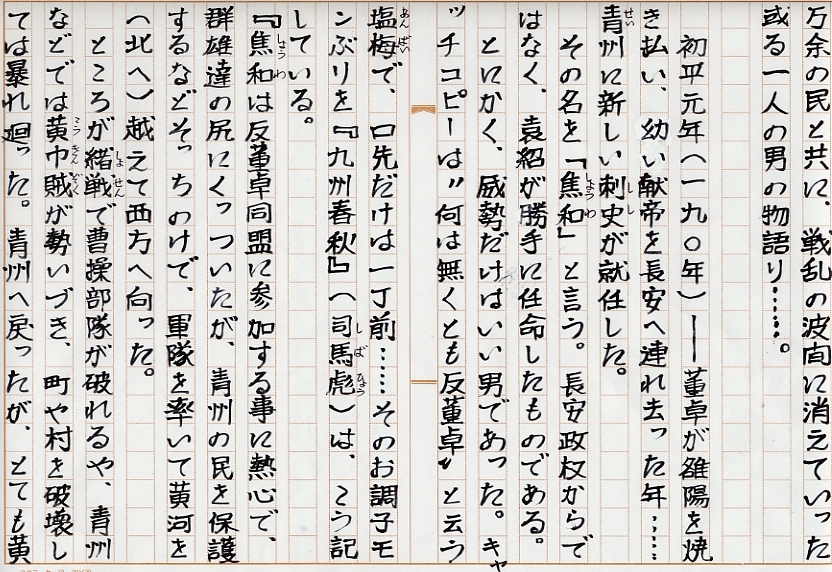 万余の民と共に、戦乱の波間に消えていった
或る一人の男の物語り……。
初平元年（一九〇年）——董卓が雒陽を焼
き払い、幼い献帝を長安へ連れ去った年……
青州に新しい刺史が就任した。
その名を「焦和」と言う。長安政権からで
はなく、袁紹が勝手に任命したものである。
とにかく、威勢だけはいい男であった。キャ
ッチコピーは〃何は無くとも反董卓〃と云う
塩梅で、口先だけは一丁前……そのお調子モ
ンぶりを『九州春秋』（司馬彪）は、こう記
している。
『焦和は反董卓同盟に参加する事に熱心で、
群雄達の尻にくっついたが、青州の民を保護
するなどそっちのけで、軍隊を率いて黄河を
（北へ）越えて西方へ向った。
ところが緒戦で曹操部隊が破れるや、青州
などでは黄巾賊が勢いづき、町や村を破壊し
ては暴れ廻った。青州へ戻ったが、とても黄